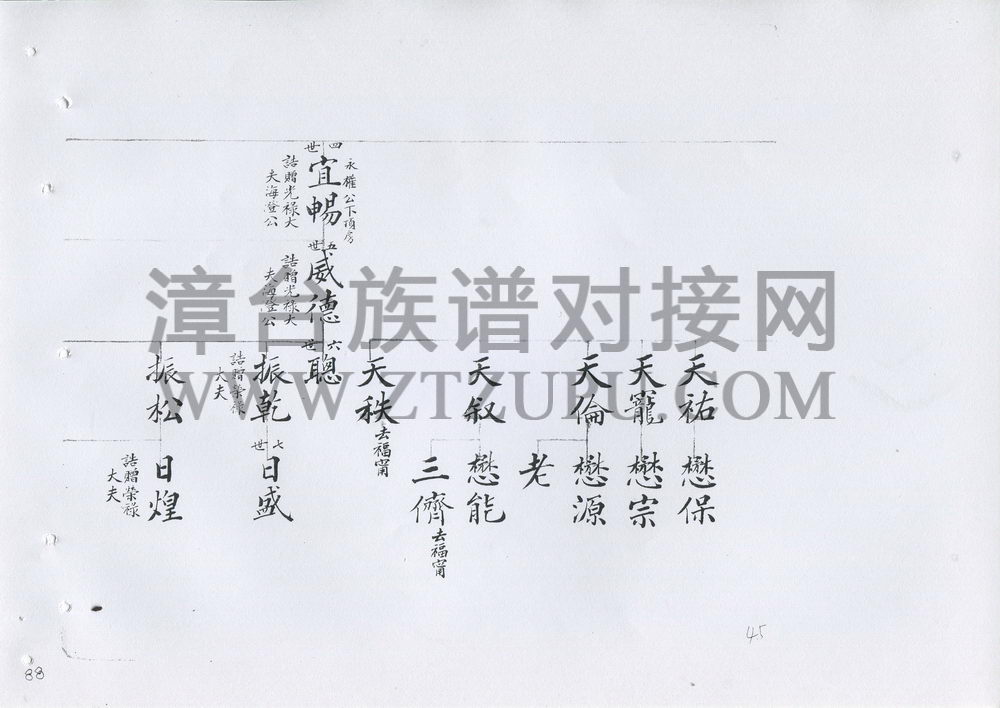 四世
永權公下頂房
宜暢
誥贈光祿大
夫海澄公
五世
威德
誥贈光祿大
夫海澄公
六世
聰
天祐
天寵
天倫
天叙
天秩
去福甯
振乾
誥贈榮祿
大夫
振松
懋保
懋宗
懋源
老
懋能
三儕
去福甯
七世
日盛
日煌
誥贈榮祿
大夫
漳台族谱对接网
WWW.ZTZUPU.COM
45
88